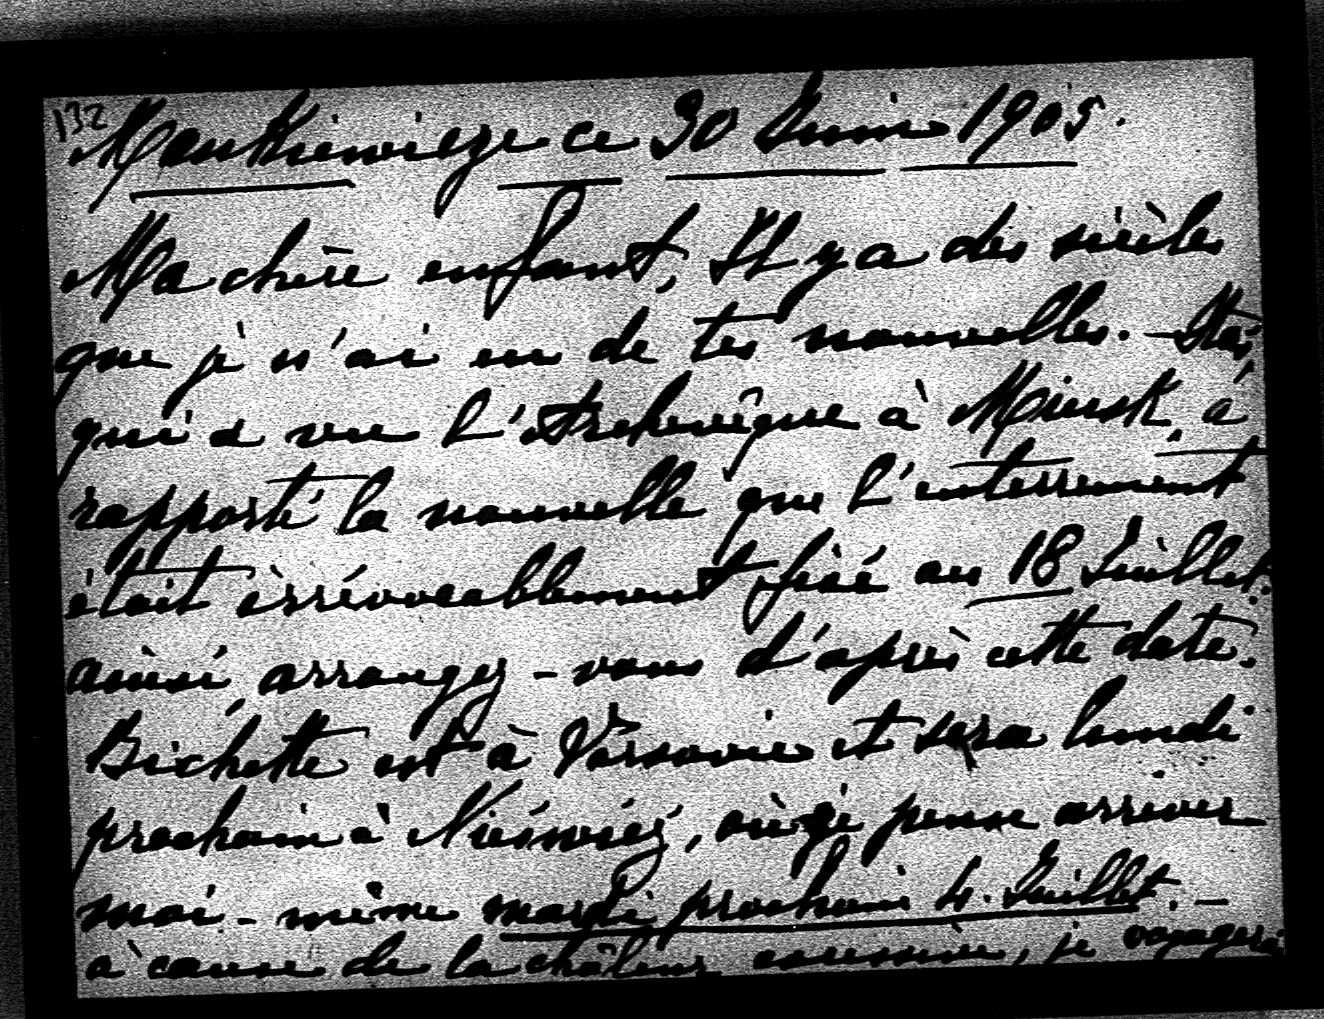 132
Mankiewicze ce 30 Juin 1905.
Ma chère enfant, Il y a des siècles
que je n'ai eu de tes nouvelles. – Staś,
qui a vu l'Archevêque à Minsk, a
rapporté la nouvelle que l'enterrement
était irrévocablement fixé au 18 Juillet:
ainsi arrangez-vous d'après cette date.
Bichette est à Varsovie et sera lundi
prochain à Nieśwież, où je pense arriver
moi-même mardi prochain 4. Juillet. –
à cause de la châleur excessive, je voyagerai